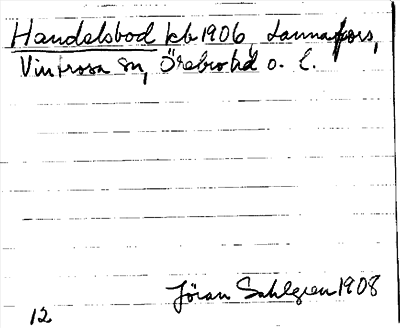 Handelsbod kb 1906, Lannafors,
Vintrosa sn, Örebro hd o. l.
Jöran Sahlgren 1908
12